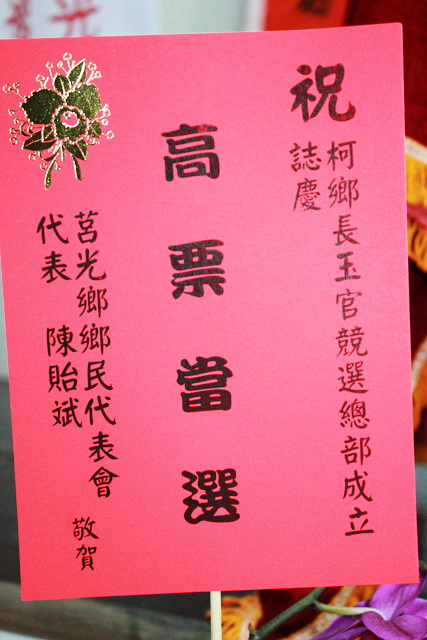 祝
柯鄉長玉官競選總部成立
誌慶
高票當選
莒光鄉鄉民代表會
代表 陳貽斌
敬賀
光